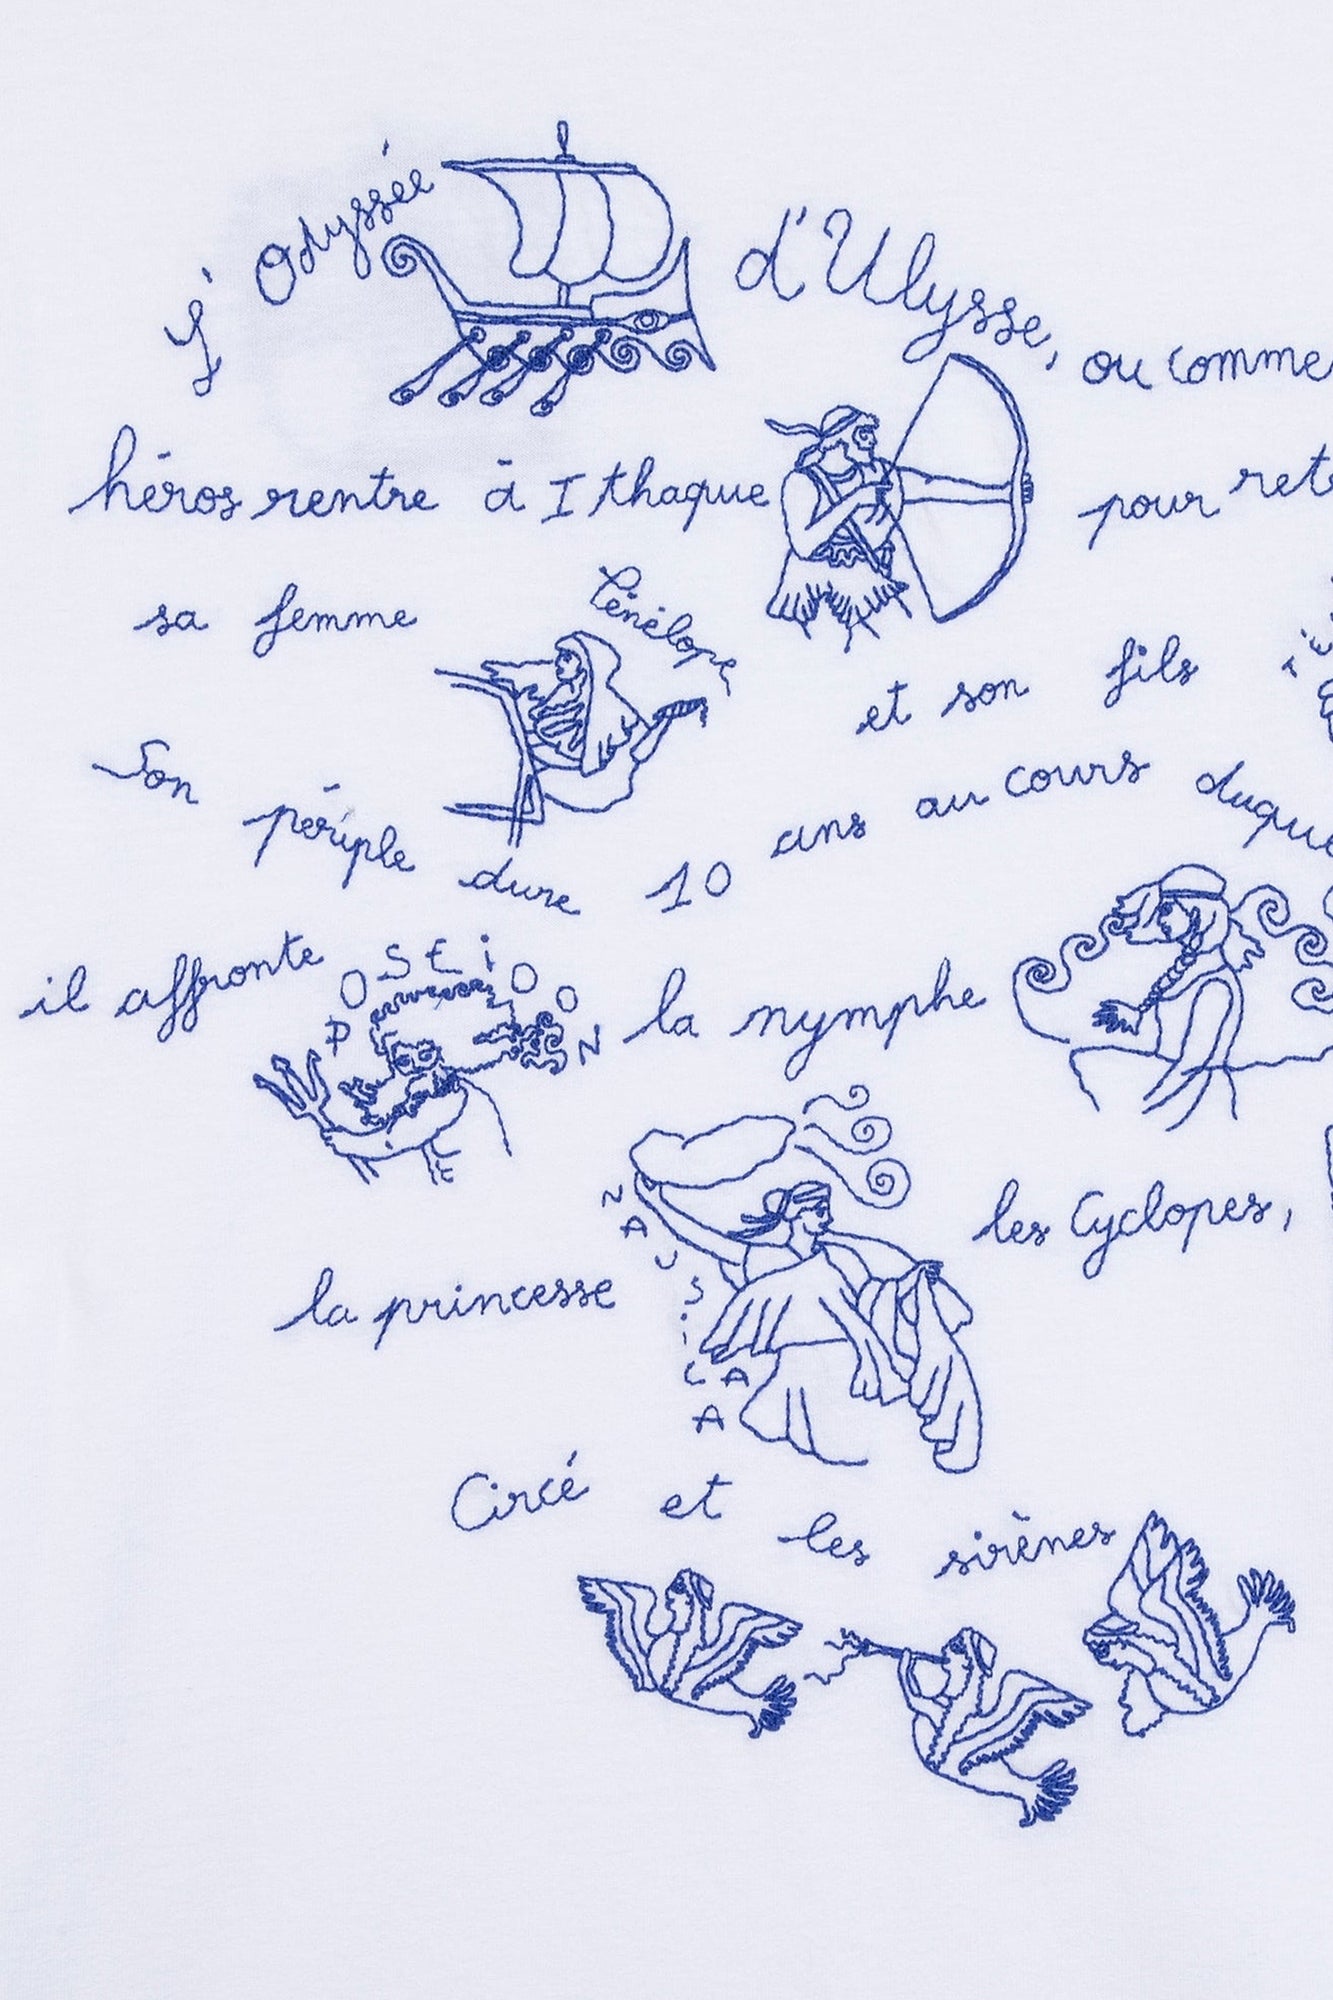 L'Odyssée d'Ulysse, ou comme
héros rentre à Ithaque pour
sa femme Pénélope, et son fils
Son périple dure 10 ans au cours
il affronte POSEiDON la nymphe
les Cyclopes,
la princesse NAUSiCAA
Circé et les sirènes